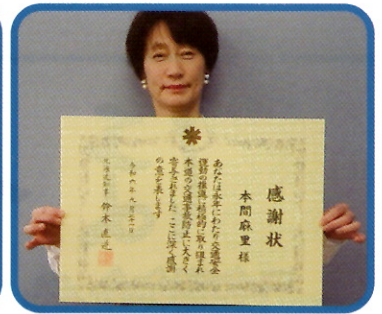 感謝状
本間麻里 様
あなたは永年にわたり交通安全
運動の推進に積極的に取り組まれ
本道の交通事故防止に大きく
寄与されました ここに深く感謝
の意を表します
令和六年九月二十一日
北海道知事 鈴木直道